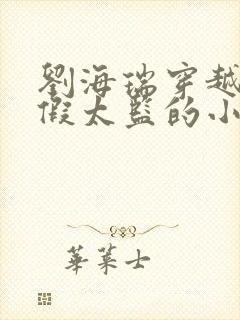 劉海瑞穿越
假太監的小
華萊士